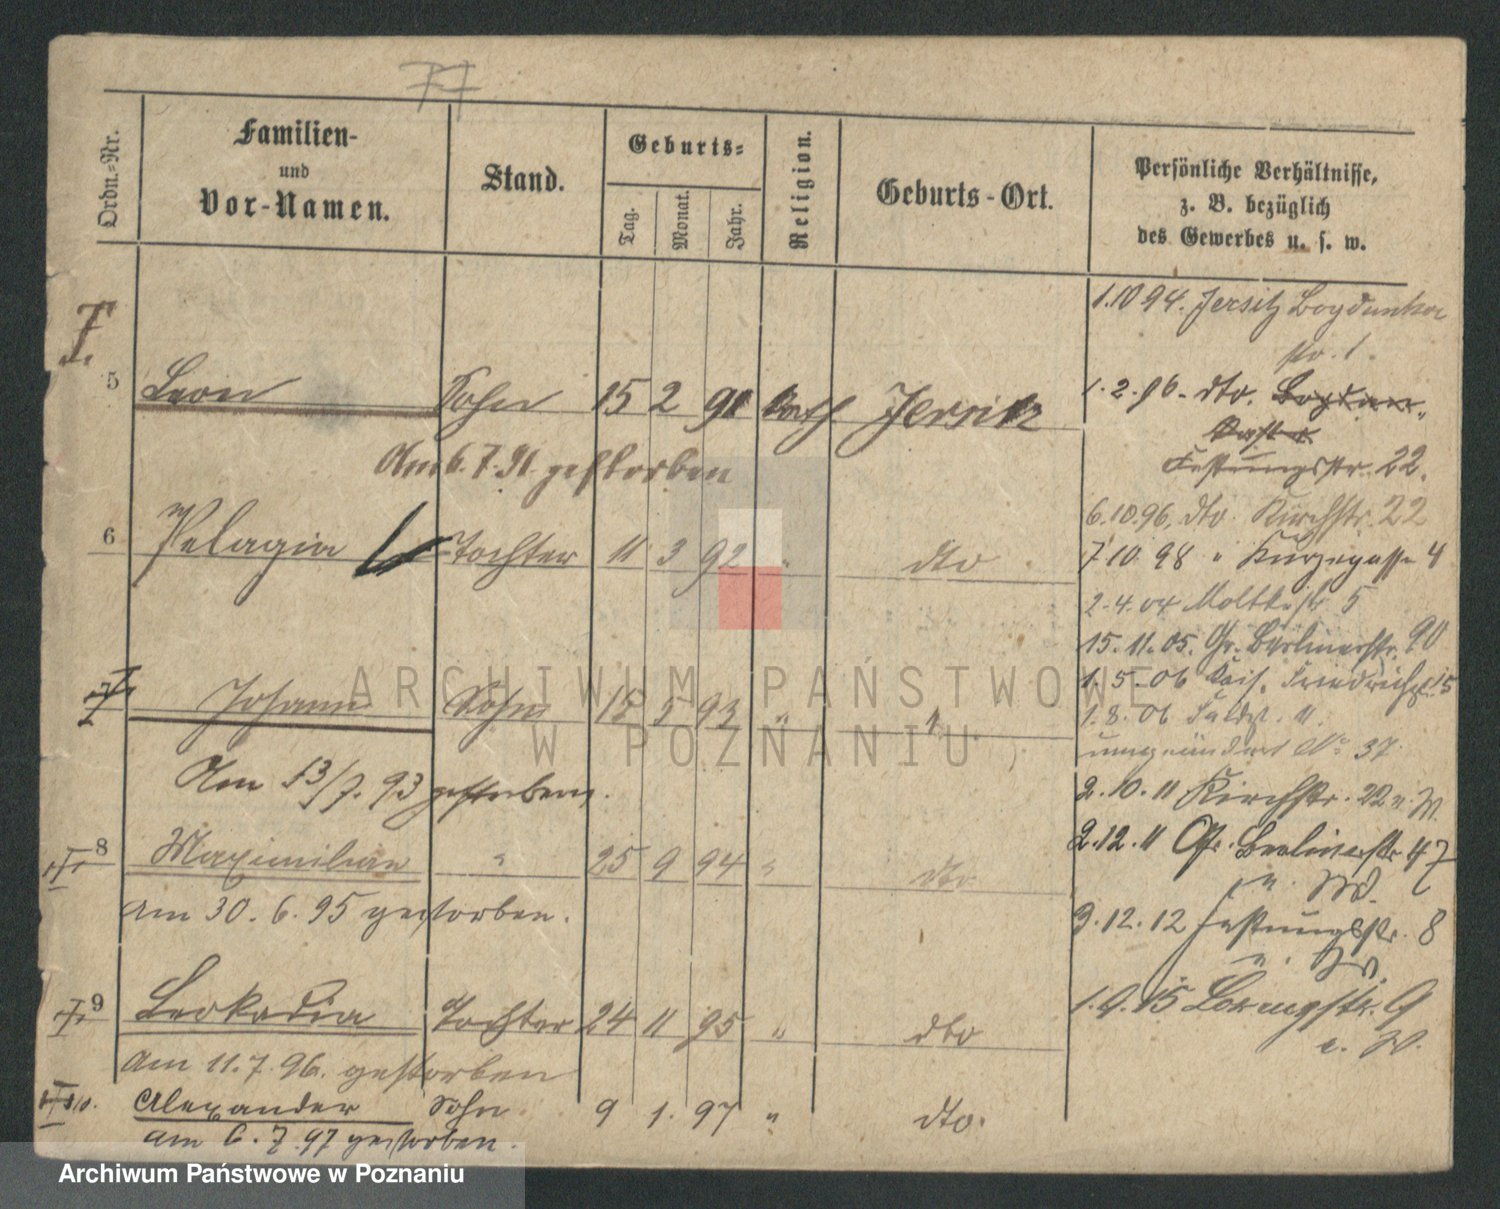 77
Ordn.-Nr.
Familien-
und
Vor-Namen.
Stand.
Geburts-
Tag.
Monat.
Jahr.
Religion.
Geburts-Ort.
Persönliche Verhältnisse,
z. B. bezüglich
des Gewerbes u. s. w.
5 Leon Sohn 15 2 91 Kath Jersitz
Am 6.7.91. gestorben
6 Pelagia Tochter 11 3 92 " dto
7 Johann Sohn 5 93 "
Am 13/7. 93 gestorben.
8 Maximilian " 25 9 94 " dto
am 30. 6. 95 gestorben.
9 Leokadia Tochter 24 11 95 " dto
am 11.7.96. gestorben
10. Alexander Sohn 9 1. 97 " dto.
am 6. 7. 97 gestorben.
1.10 94. Jersitz Bogdanka
str. 1.
1.2.96. dto. Bogdan-
Festungsstr. 22.
6.10.96. dto. Kirchstr. 22
7.10.98 " Kurzegasse 4
2.4.04 Moltkestr 5
15.11.05. Gr. Berlinerstr. 90
1.5.06 Kais. Friedrichstr. 15
1.8.06 Feldst. 11.
umgeändert No 37.
2.10.11 Kirchstr. 22 n. W.
2.12.11 Gr. Berlinerstr 47
n. W.
3.12.12 Festungsstr. 8
n. W.
15 9
n. W.
ARCHIWUM PAŃSTWOWE
W POZNANIU
Archiwum Państwowe w Poznaniu